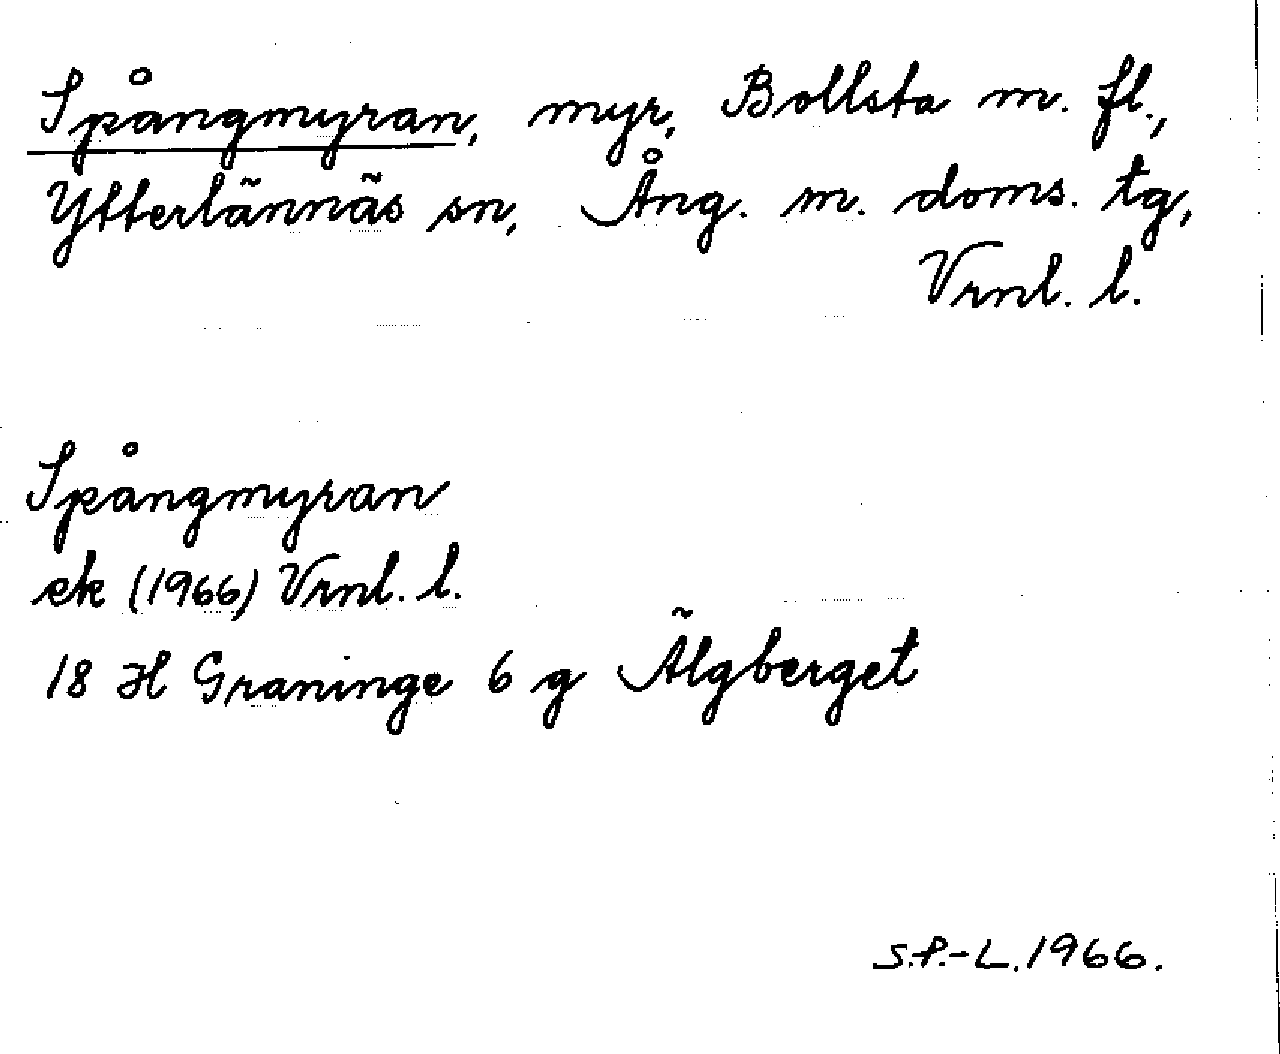 Spångmyran, myr, Bollsta m. fl.,
Ytterlännäs sn, Ång. m. doms. tg,
Vrnl. l.
Spångmyran
ek (1966) Vrnl. l.
18 H Graninge 6 g Älgberget
S.P.-L. 1966.